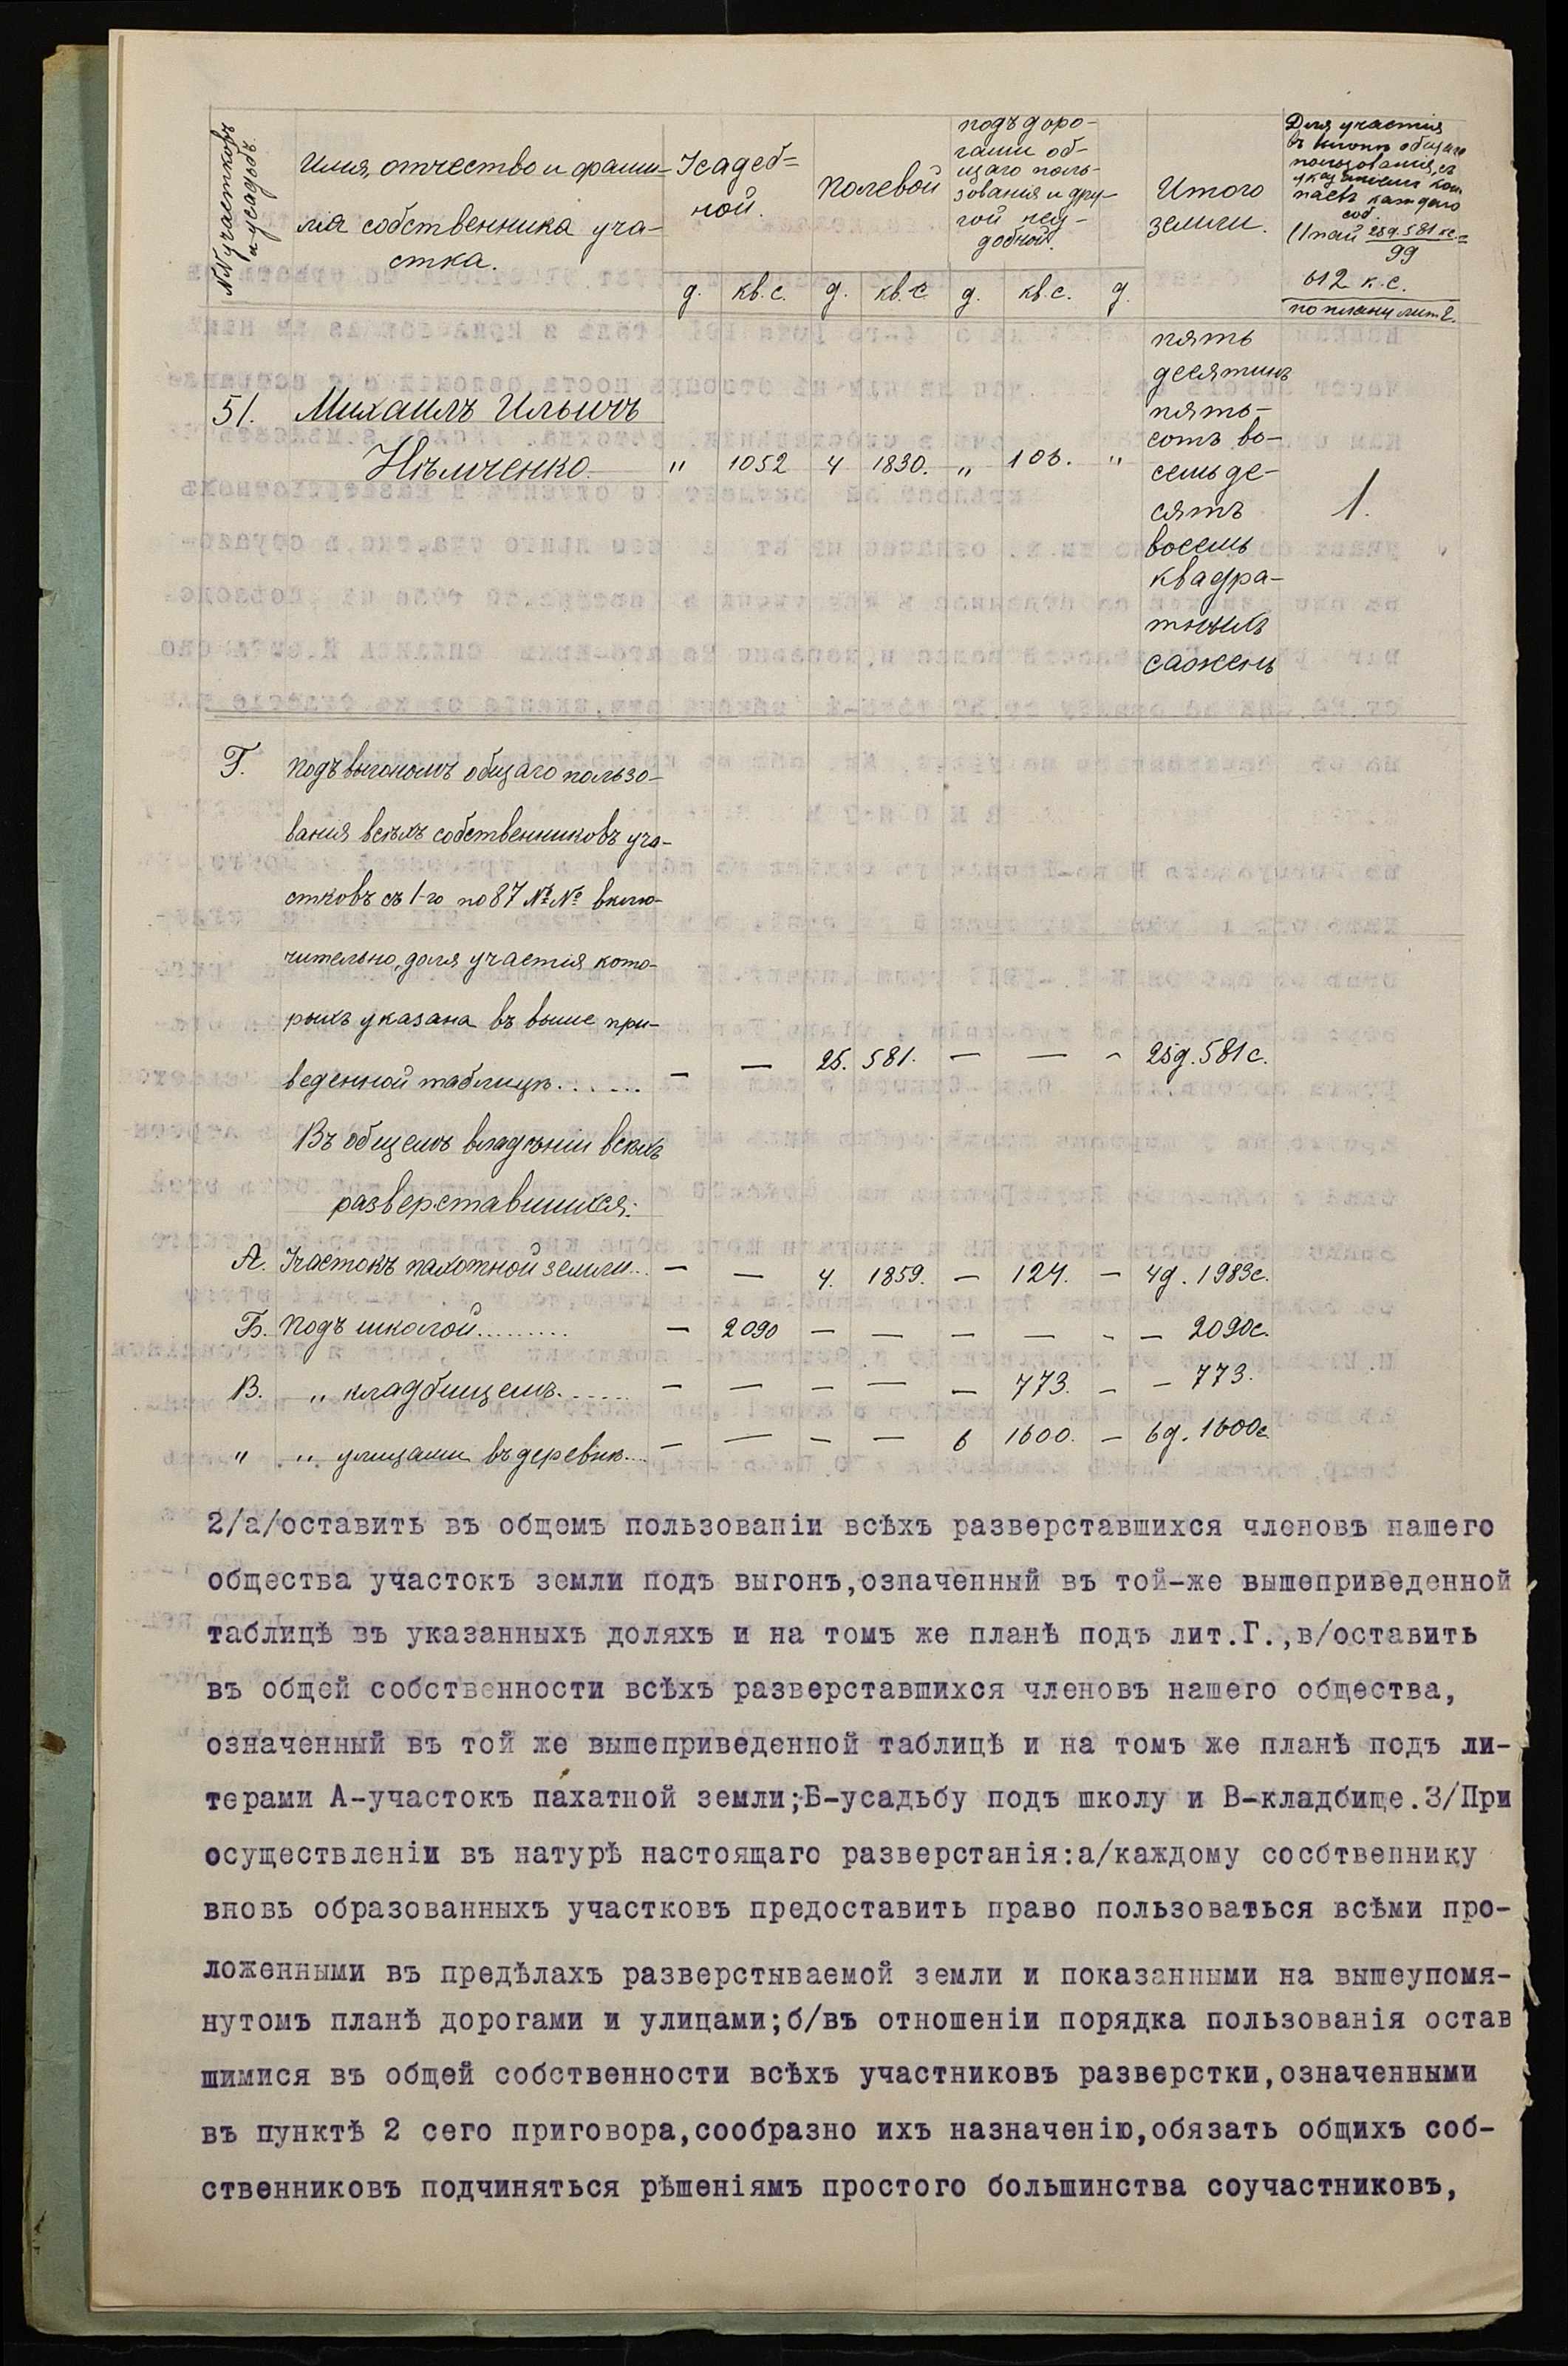 №№ участковъ и усадьбъ.
Имя, отчество и фами-
лія собственника уча-
стка.
Усадеб=
ной.
Полевой
подъ доро-
гами об-
щаго поль-
зованія и дру-
гой неу-
добной.
Итого
земли.
Доля участія
въ выгонѣ общаго
пользованія, съ
указаніемъ
паевъ каждаго
соб.
(1 пай 25д.581кс. =
99
612 к.с.
по плану лит Г.
д. кв.с. д. кв.с д. кв.с. д.
51. Михаилъ Ильичъ
Нѣмченко " 1052 4 1830. " 106. "
пять
десятинъ
пять-
сотъ во-
семьде-
сятъ
восемь
квадра-
тныхъ
сажень
1.
Г. подъ выгономъ общаго пользо-
ванія всѣхъ собственниковъ уча-
стковъ съ 1-го по 87 №№ вклю-
чительно, доля участія кото-
рыхъ указана въ выше при-
веденной таблицѣ....... — — 25. 581. — — - 25д. 581с.
Въ общемъ владѣніи всѣхъ
разверставшихся:
А. Участокъ пахотной земли... — — 4. 1859. — 124. — 4д. 1983с.
Б. Подъ школой......... — 2090 — — — — - — 2090с.
В. " кладбищемъ....... — — — — — 773. - — 773.
" " улицами въ деревнѣ.... — — — — 6 1600. — 6д. 1600с.
2/а/оставить въ общемъ пользованіи всѣхъ разверставшихся членовъ нашего
общества участокъ земли подъ выгонъ,означенный въ той-же вышеприведенной
таблицѣ въ указанныхъ доляхъ и на томъ же планѣ подъ лит.Г.,в/оставить
въ общей собственности всѣхъ разверставшихся членовъ нашего общества,
означенный въ той же вышеприведенной таблицѣ и на томъ же планѣ подъ ли-
терами А-участокъ пахатной земли;Б-усадьбу подъ школу и В-кладбище.3/При
осуществленіи въ натурѣ настоящаго разверстанія:а/каждому сособтвеннику
вновь образованныхъ участковъ предоставить право пользоваться всѣми про-
ложенными въ предѣлахъ разверстываемой земли и показанными на вышеупомя-
нутомъ планѣ дорогами и улицами;б/въ отношеніи порядка пользованія остав
шимися въ общей собственности всѣхъ участниковъ разверстки,означенными
въ пунктѣ 2 сего приговора,сообразно ихъ назначенію,обязать общихъ соб-
ственниковъ подчиняться рѣшеніямъ простого большинства соучастниковъ,